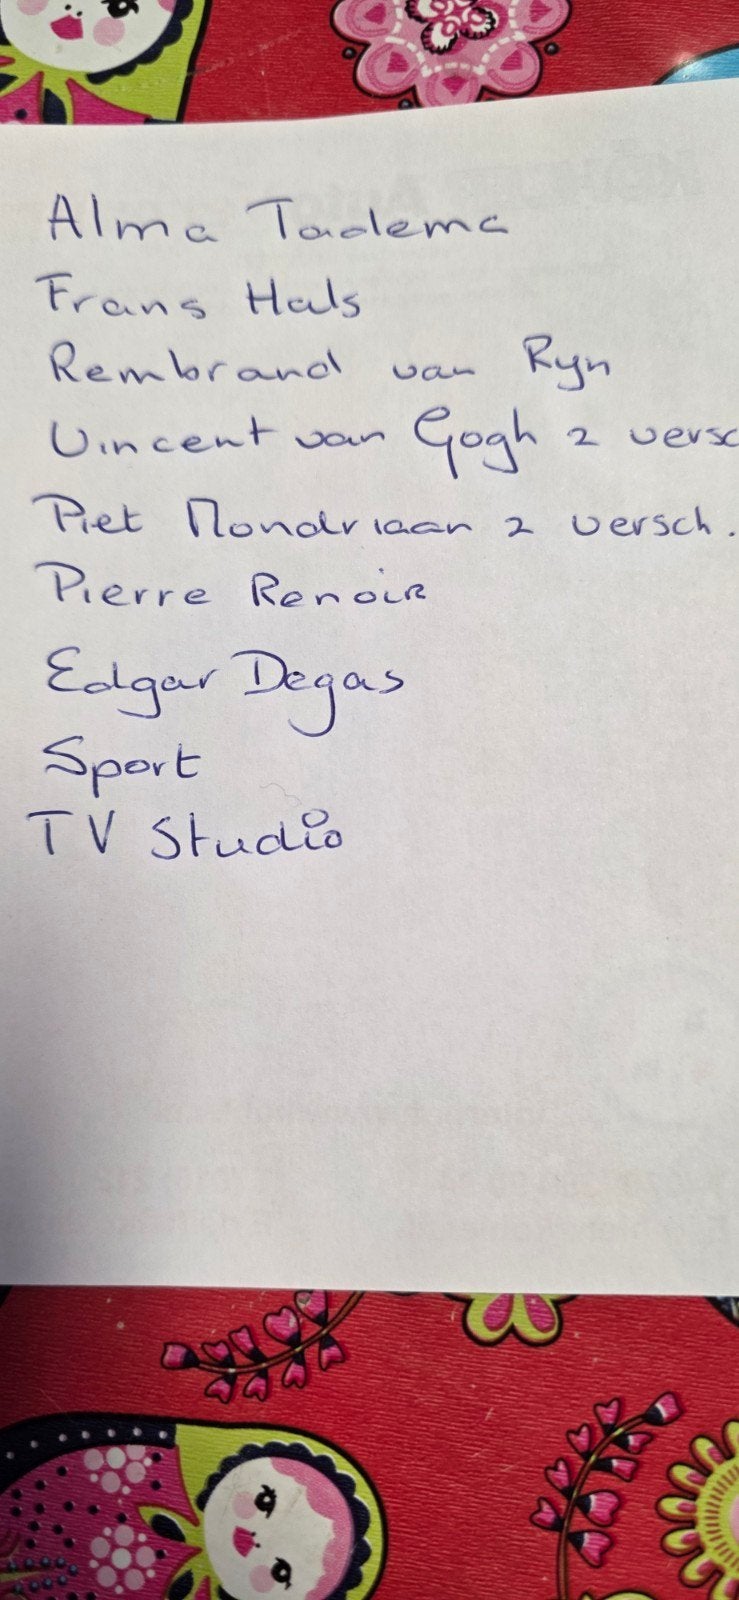 Alma Tadema
Frans Hals
Rembrand van Ryn
Vincent van Gogh 2 versc
Piet Mondriaan 2 versch.
Pierre Renoir
Edgar Degas
Sport
TV Studio